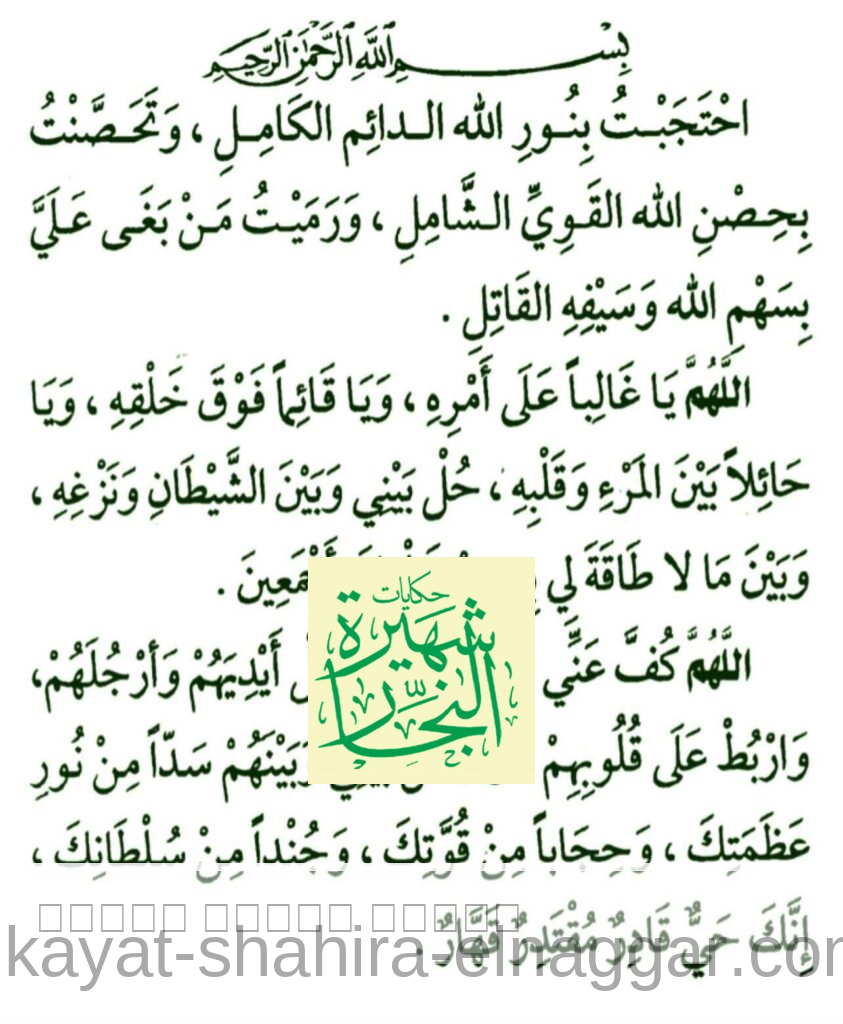 بِسْمِ اللَّهِ الرَّحْمَٰنِ الرَّحِيمِ
احْتَجَبْتُ بِنُورِ الله الدائِم الكَامِلِ ، وَتَحَصَّنْتُ
بِحِصْنِ الله القَوِيِّ الشَّامِلِ ، وَرَمَيْتُ مَنْ بَغَى عَلَيَّ
بِسَهْمِ الله وَسَيْفِهِ القَاتِلِ .
اللَّهُمَّ يَا غَالِباً عَلَى أَمْرِهِ ، وَيَا قَائِماً فَوْقَ خَلْقِهِ ، وَيَا
حَائِلاً بَيْنَ المَرْءِ وَقَلْبِهِ ، حُلْ بَيْنِي وَبَيْنَ الشَّيْطَانِ وَنَزْغِهِ ،
وَبَيْنَ مَا لا طَاقَةَ لِي
اللَّهُمَّ كُفَّ عَنِّي أَيْدِيَهُمْ وَأَرْجُلَهُمْ،
وَارْبُطْ عَلَى قُلُوبِهِمْ وَبَيْنَهُمْ سَدّاً مِنْ نُورِ
عَظَمَتِكَ ، وَحِجَاباً مِنْ قُوَّتِكَ ، وَجُنْداً مِنْ سُلْطَانِكَ ،
إِنَّكَ حَيٌّ قَادِرٌ مُقْتَدِرٌ قَهَّارٌ .
حكايات
شهيرة
النجار
kayat-shahira-elnaggar.com